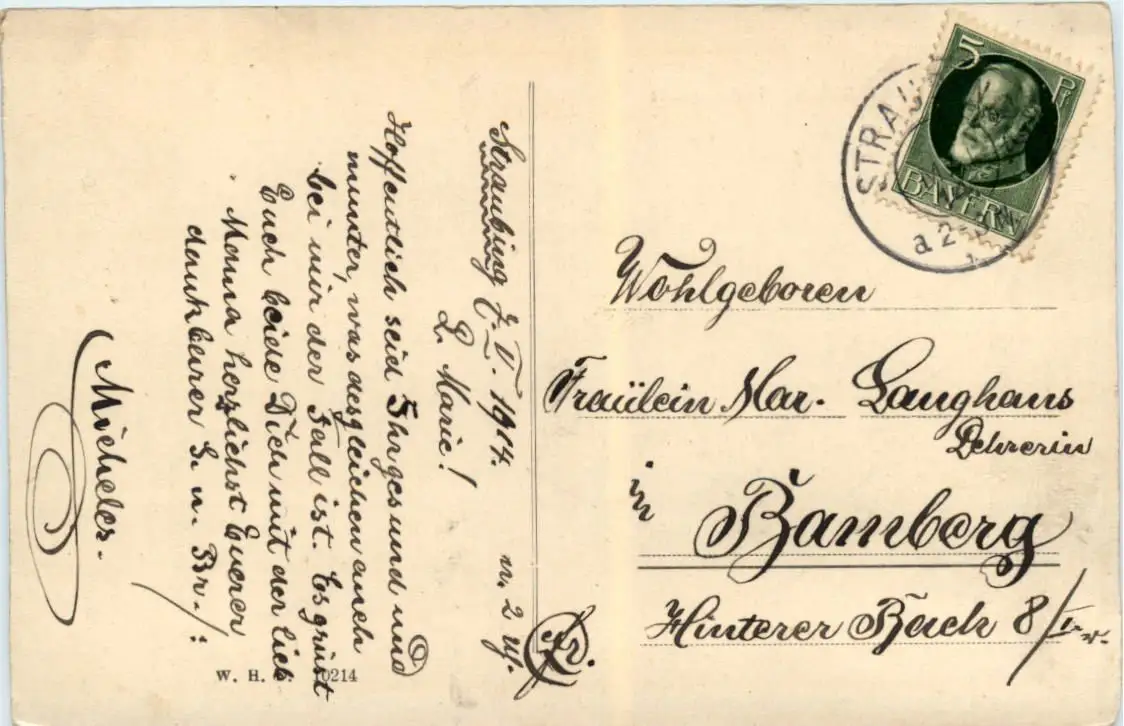 Straubing 7. V. 1914. n. 2 U.
L. Marie!
Hoffentlich seid Ihr gesund und
munter, was desgleichen auch
bei mir der Fall ist. Es grüsst
Euch beide Dich mit der lieb
Mama herzlichst Euerer
dankbarer S. u. Br.
Micheles.
W. H. 10214
5 Pf
BAYERN
STRAU
a 2-3 N
Wohlgeboren
Fräulein Mar. Langhans
Lehrerin
in
Bamberg
Hinterer Bach 8/I
Fr.